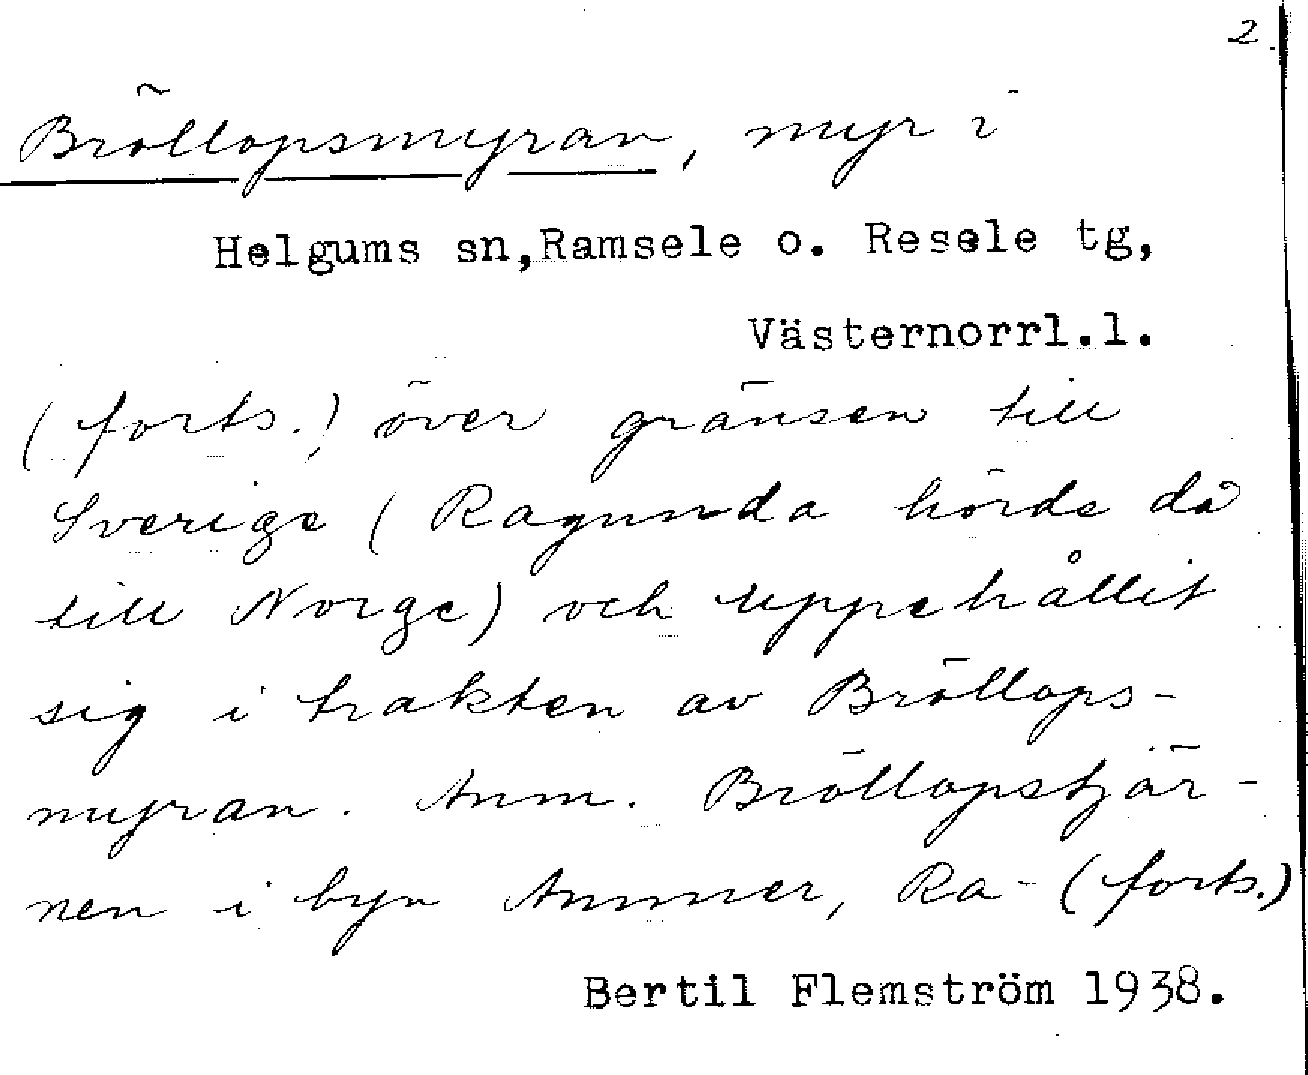 2.
Bröllopsmyran, myr i
Helgums sn,Ramsele o. Resele tg,
Västernorrl.l.
(forts.) över gränsen till
Sverige (Ragunda hörde då
till Norge) och uppehållit
sig i trakten av Bröllops-
myran. Anm. Bröllopstjär-
nen i byn Ammer, Ra- (forts.)
Bertil Flemström 1938.